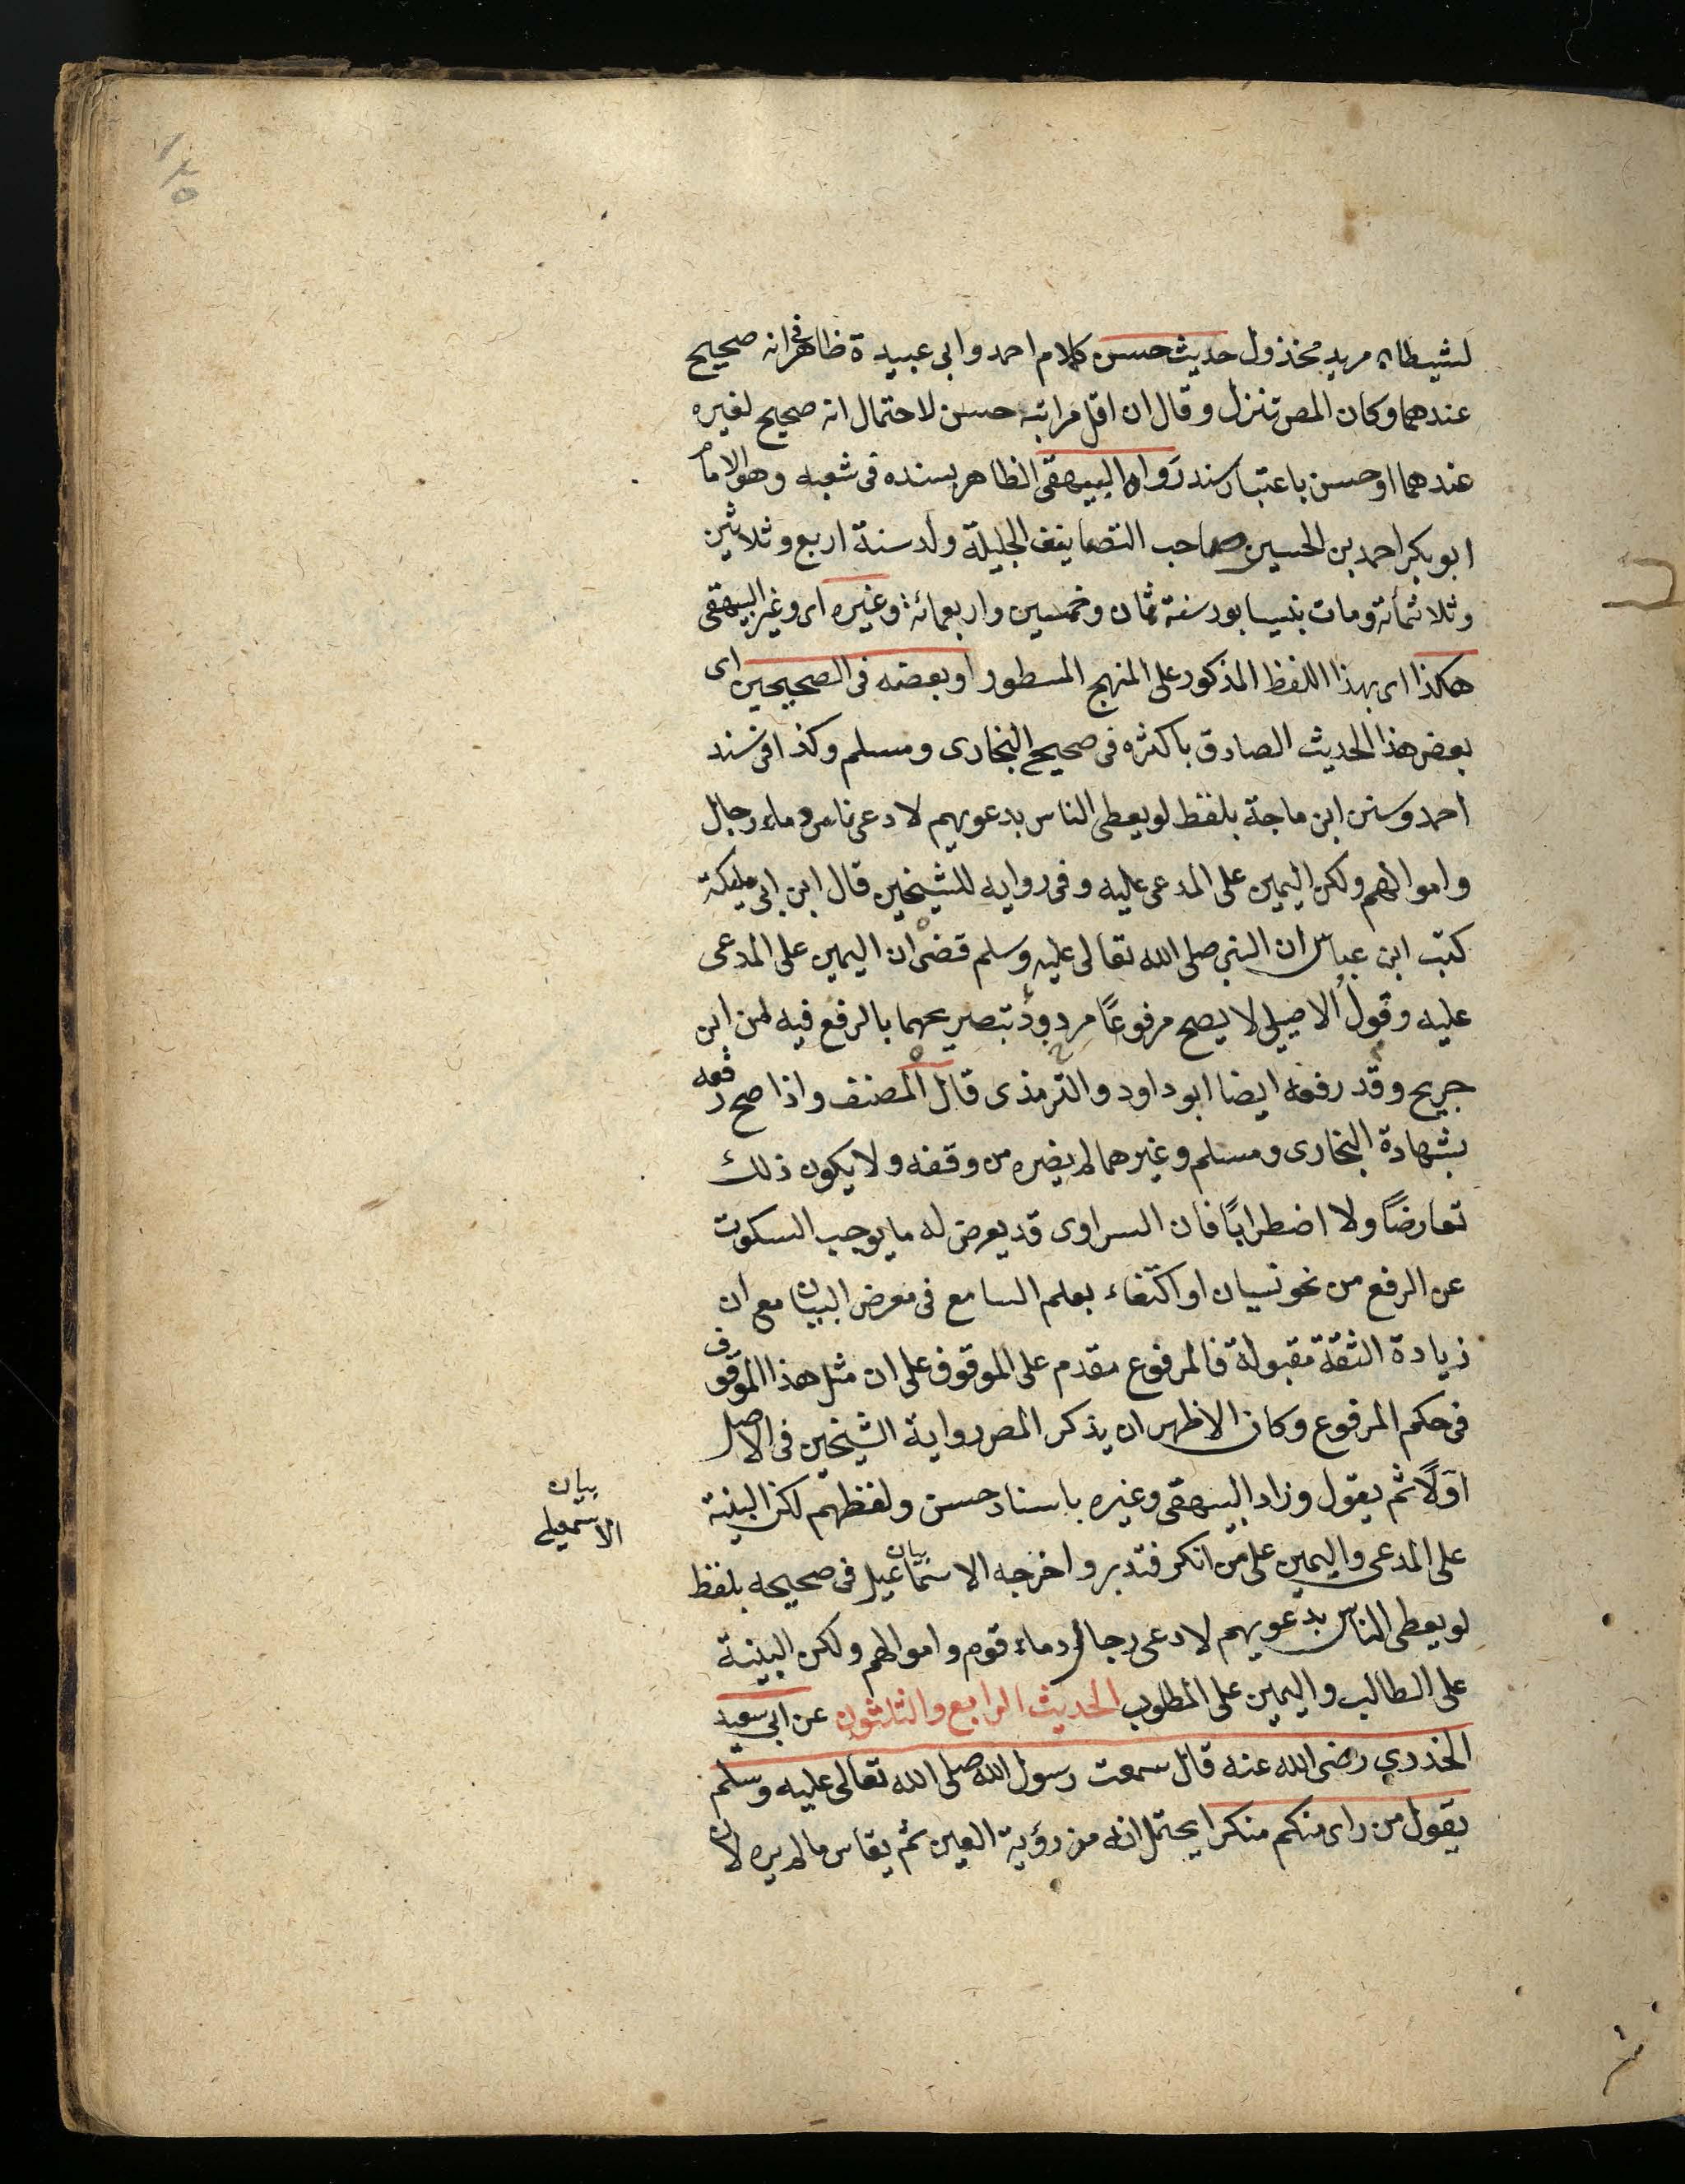 ١٤٥
لشيطان مريد مخذول حديث حسن كلام احمد وابى عبيدة ظاهر فى انه صحيح
عندهما وكان المص تنزل وقال ان اقل مراتبه حسن لاحتمال انه صحيح لغيره
عندهما او حسن باعتبار سند رواه البيهقى الظاهر بسنده فى شعبه وهو الامام
ابو بكر احمد بن الحسين صاحب التصانيف الجليلة ولد سنة اربع وثلاثين
وثلاثمائة ومات بنيسابور سنة ثمان وخمسين واربعمائة وغيره اى وغير البيهقى
هكذا اى بهذا اللفظ المذكور على المنهج المسطور او بعضه فى الصحيحين اى
بعض هذا الحديث الصادق باكثره فى صحيح البخارى ومسلم وكذا فى سند
احمد وسنن ابن ماجة بلفظ لو يعطى الناس بدعويهم لادعى ناس دماء رجال
واموالهم ولكن اليمين على المدعى عليه وفى رواية للشيخين قال ابن ابى مليكة
كتب ابن عباس ان النبى صلى الله تعالى عليه وسلم قضى ان اليمين على المدعى
عليه وقول الاصيلى لا يصح مرفوعًا مردود بتصريحهما بالرفع فيه من ابن
جريج وقد رفعه ايضا ابو داود والترمذى قال المصنف واذا صح رفعه
بشهادة البخارى ومسلم وغيرهما لم يضره من وقفه ولا يكون ذلك
تعارضًا ولا اضطرابًا فان الراوى قد يعرض له ما يوجب السكوت
عن الرفع من نحو نسيان او اكتفاء بعلم السامع فى معرض البيان مع ان
زيادة الثقة مقبولة فالمرفوع مقدم على الموقوف على ان مثل هذا الموقوف
فى حكم المرفوع وكان الاظهر ان يذكر المص رواية الشيخين فى الاصل
اولًا ثم يقول وزاد البيهقى وغيره باسناد حسن ولفظهم لكن البينة
على المدعى واليمين على من انكر فتدبر واخرجه الاسماعيل فى صحيحه بلفظ
بيان
الاسمعيلى
لو يعطى الناس بدعويهم لادعى رجال دماء قوم واموالهم ولكن البينة
على الطالب واليمين على المطلوب الحديث الرابع والثلثون عن ابى سعيد
الخدري رضى الله عنه قال سمعت رسول الله صلى الله تعالى عليه وسلم
يقول من راى منكم منكرا يحتمل انه من رؤية العين ثم يقاس ما لم يره لان